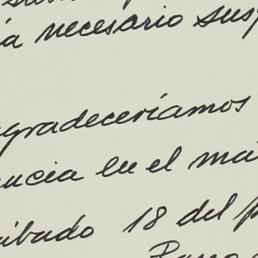 ía necesario sus
agradeceríamos
encia en el má
sábado 18 del p